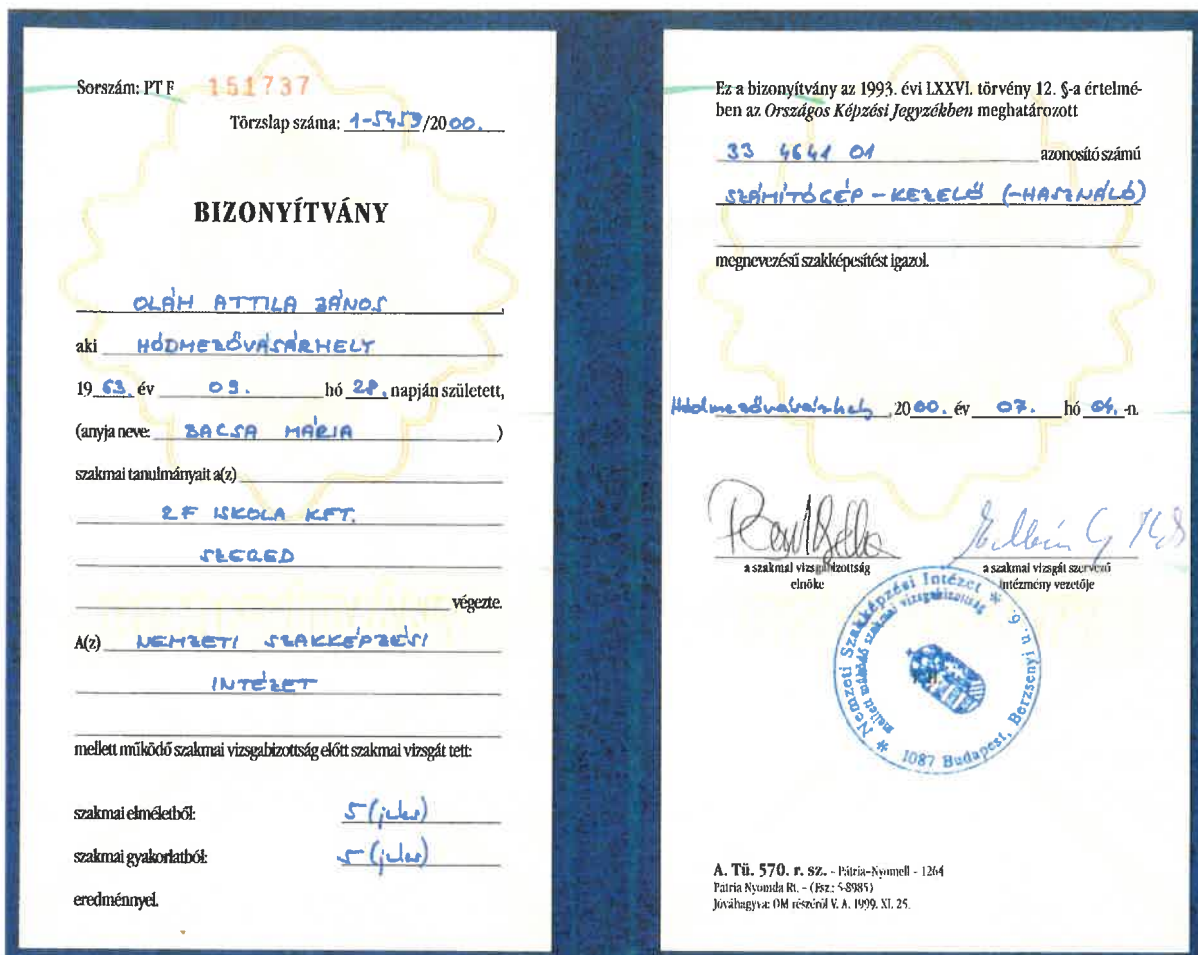 Sorszám: PT F 151737
Törzslap száma: 1-5459/2000.
BIZONYÍTVÁNY
OLÁH ATTILA JÁNOS,
aki HÓDMEZŐVÁSÁRHELY
1963. év 09. hó 28. napján született,
(anyja neve: BACSA MÁRIA)
szakmai tanulmányait a(z)
2F ISKOLA KFT.
SZEGED
végezte.
A(z) NEMZETI SZAKKÉPZÉSI
INTÉZET
mellett működő szakmai vizsgabizottság előtt szakmai vizsgát tett:
szakmai elméletből: 5 (jeles)
szakmai gyakorlatból: 5 (jeles)
eredménnyel.
Ez a bizonyítvány az 1993. évi LXXVI. törvény 12. §-a értelmé-
ben az Országos Képzési Jegyzékben meghatározott
33 4641 01 azonosító számú
SZÁMÍTÓGÉP-KEZELŐ (-HASZNÁLÓ)
megnevezésű szakképesítést igazol.
Hódmezővásárhely, 2000. év 07. hó 04.-n.
a szakmai vizsgabizottság
elnöke
a szakmai vizsgát szervező
intézmény vezetője
* Nemzeti Szakképzési Intézet *
mellett működő szakmai vizsgabizottság
1087 Budapest, Berzsenyi u. 6.
A. Tü. 570. r. sz. - Pátria-Nyomell - 1264
Pátria Nyomda Rt. - (Fsz.: 5-8985)
Jóváhagyva: OM részéről V. A. 1999. XI. 25.